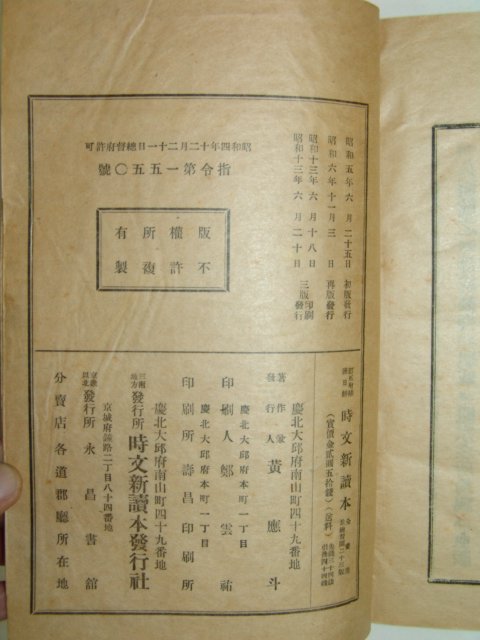 昭和四年十二月二十一日總督府許可
指令第一五五〇號
昭和五年六月二十五日初版發行
昭和六年十一月三日再版發行
昭和十三年六月十八日
昭和十三年六月二十日
三版印刷
發行
版權所有
不許複製
時文新讀本
(實價金貳圓五拾錢)(送料)
著作兼
發行人 黃應斗
慶北大邱府南山町四十九番地
慶北大邱府本町一丁目
印刷人 鄭雲祐
慶北大邱府本町一丁目
印刷所 壽昌印刷所
慶北大邱府南山町四十九番地
三南地方
發行所 時文新讀本發行社
京城府鐘路二丁目八十四番地
京畿以北
發行所 永昌書館
分賣店各道郡廳所在地